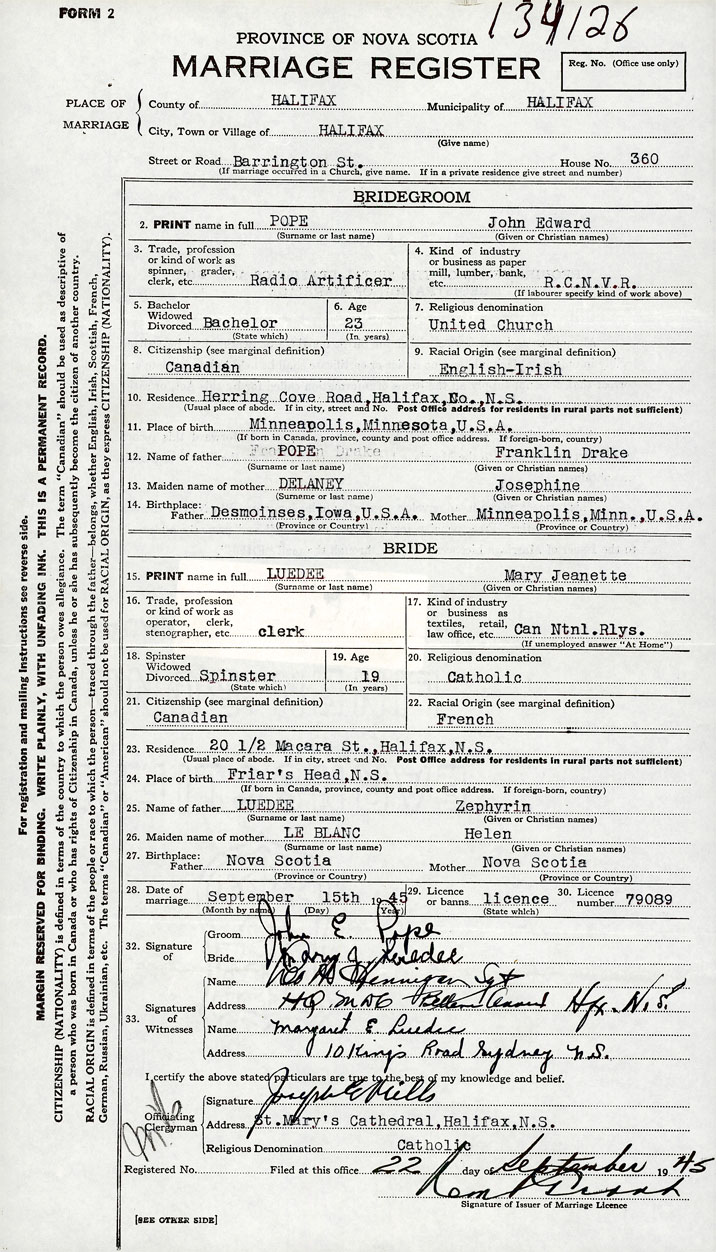 FORM 2
134126
PROVINCE OF NOVA SCOTIA
MARRIAGE REGISTER
Reg. No. (Office use only)
PLACE OF MARRIAGE
County of HALIFAX Municipality of HALIFAX
City, Town or Village of HALIFAX
(Give name)
Street or Road Barrington St. House No. 360
(If marriage occurred in a Church, give name. If in a private residence give street and number)
BRIDEGROOM
2. PRINT name in full POPE John Edward
(Surname or last name) (Given or Christian names)
3. Trade, profession or kind of work as spinner, grader, clerk, etc. Radio Artificer
4. Kind of industry or business as paper mill, lumber, bank, etc. R.C.N.V.R.
(If labourer specify kind of work above)
5. Bachelor Widowed Divorced Bachelor
(State which)
6. Age 23
(In years)
7. Religious denomination
United Church
8. Citizenship (see marginal definition)
Canadian
9. Racial Origin (see marginal definition)
English-Irish
10. Residence Herring Cove Road,Halifax,Co.,N.S.
(Usual place of abode. If in city, street and No. Post Office address for residents in rural parts not sufficient)
11. Place of birth Minneapolis,Minnesota,U.S.A.
(If born in Canada, province, county and post office address. If foreign-born, country)
12. Name of father POPE Franklin Drake
(Surname or last name) (Given or Christian names)
13. Maiden name of mother DELANEY Josephine
(Surname or last name) (Given or Christian names)
14. Birthplace: Father Desmoinses,Iowa,U.S.A. Mother Minneapolis,Minn.,U.S.A.
(Province or Country) (Province or Country)
BRIDE
15. PRINT name in full LUEDEE Mary Jeanette
(Surname or last name) (Given or Christian names)
16. Trade, profession or kind of work as operator, clerk, stenographer, etc. clerk
17. Kind of industry or business as textiles, retail, law office, etc. Can Ntnl.Rlys.
(If unemployed answer "At Home")
18. Spinster Widowed Divorced Spinster
(State which)
19. Age 19
(In years)
20. Religious denomination
Catholic
21. Citizenship (see marginal definition)
Canadian
22. Racial Origin (see marginal definition)
French
23. Residence 20 1/2 Macara St.,Halifax,N.S.
(Usual place of abode. If in city, street and No. Post Office address for residents in rural parts not sufficient)
24. Place of birth Friar's Head,N.S.
(If born in Canada, province, county and post office address. If foreign-born, country)
25. Name of father LUEDEE Zephyrin
(Surname or last name) (Given or Christian names)
26. Maiden name of mother LE BLANC Helen
(Surname or last name) (Given or Christian names)
27. Birthplace: Father Nova Scotia Mother Nova Scotia
(Province or Country) (Province or Country)
28. Date of marriage September 15th 1945
(Month by name) (Day) (Year)
29. Licence or banns licence
(State which)
30. Licence number 79089
32. Signature of
Groom John E. Pope
Bride Mary J. Luedee
33. Signatures of Witnesses
Name Sgt
Address HQ Hfx. N.S.
Name Margaret E Luedee
Address 10 King's Road Sydney N.S.
I certify the above stated particulars are true to the best of my knowledge and belief.
Officiating Clergyman
Signature Joseph E Mills
Address St.Mary's Cathedral,Halifax,N.S.
Religious Denomination Catholic
Registered No. Filed at this office 22 day of September 1945
Signature of Issuer of Marriage Licence
[SEE OTHER SIDE]
For registration and mailing instructions see reverse side.
MARGIN RESERVED FOR BINDING. WRITE PLAINLY, WITH UNFADING INK. THIS IS A PERMANENT RECORD.
CITIZENSHIP (NATIONALITY) is defined in terms of the country to which the person owes allegiance. The term "Canadian" should be used as descriptive of
a person who was born in Canada or who has rights of Citizenship in Canada, unless he or she has subsequently become the citizen of another country.
RACIAL ORIGIN is defined in terms of the people or race to which the person—traced through the father—belongs, whether English, Irish, Scottish, French,
German, Russian, Ukrainian, etc. The terms "Canadian" or "American" should not be used for RACIAL ORIGIN, as they express CITIZENSHIP (NATIONALITY).